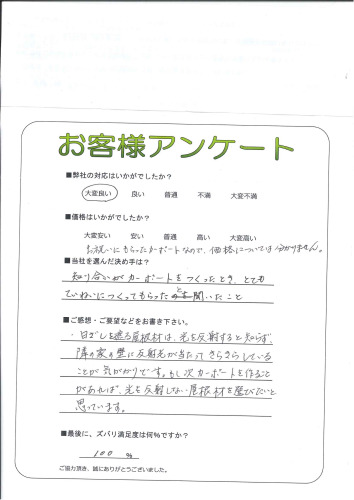 お客様アンケート
■弊社の対応はいかがでしたか？
大変良い 良い 普通 不満 大変不満
■価格はいかがでしたか？
大変安い 安い 普通 高い 大変高い
お祝いにもらったカーポートなので、価格については分かりません。
■当社を選んだ決め手は？
知り合いがカーポートをつくったとき、とても
ていねいにつくってもらったと聞いたこと
■ご感想・ご要望などをお書き下さい。
・日ざしを遮る屋根材は、光を反射すると知らず、
隣の家の壁に反射光が当たってきらきらしている
ことが気がかりです。もし次カーポートを作ること
があれば、光を反射しない屋根材を選びたいと
思っています。
■最後に、ズバリ満足度は何％ですか？
100 %
ご協力頂き、誠にありがとうございました。